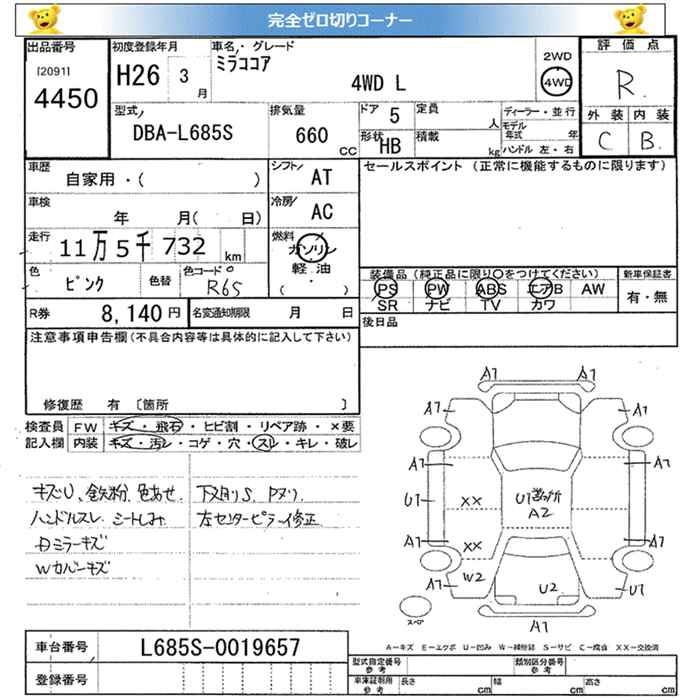 完全ゼロ切りコーナー
出品番号
I20911
4450
初度登録年月
H26 3 月
車名・グレード
ミラココア
4WD L
2WD
4WD
評価点
R
外装 内装
C B
型式
DBA-L685S
排気量
660 CC
ドア 5
形状 HB
定員 人
積載 kg
ディーラー・並行
モデル年式 年
ハンドル 左・右
車歴
自家用・( )
シフト AT
セールスポイント (正常に機能するものに限ります)
車検
年 月( 日)
冷房 AC
走行
11万5千732 km
燃料
ガソリン
軽油
( ・ )
色
ピンク
色替
色コード
R65
装備品(純正品に限り○をつけてください)
PS PW ABS エアB AW
SR ナビ TV カワ
新車保証書
有・無
R券 8,140円
名変通知期限 月 日
後日品
注意事項申告欄(不具合内容等は具体的に記入して下さい)
修復歴 有 〔箇所 〕
検査員
記入欄
FW キズ・飛石・ヒビ割・リペア跡・×要
内装 キズ・汚レ・コゲ・穴・スレ・キレ・破レ
キズU、鉄粉、色あせ
ハンドルスレ シートしみ
Bミラーキズ
Wカバーキズ
下廻りS Pヌリ
左センターピラー修正
A1 A1
A1 A1
A1 A1
U1 XX U1 A2
A1 XX A1
A1 W2 U2 U1
A1
スペア
A-キズ E-エクボ U-凹み W-補修跡 S-サビ C-腐食 XX-交換済
車台番号 L685S-0019657
登録番号
型式指定番号 参考
類別区分番号 参考
車庫証明用 参考
長さ cm
幅 cm
高さ cm